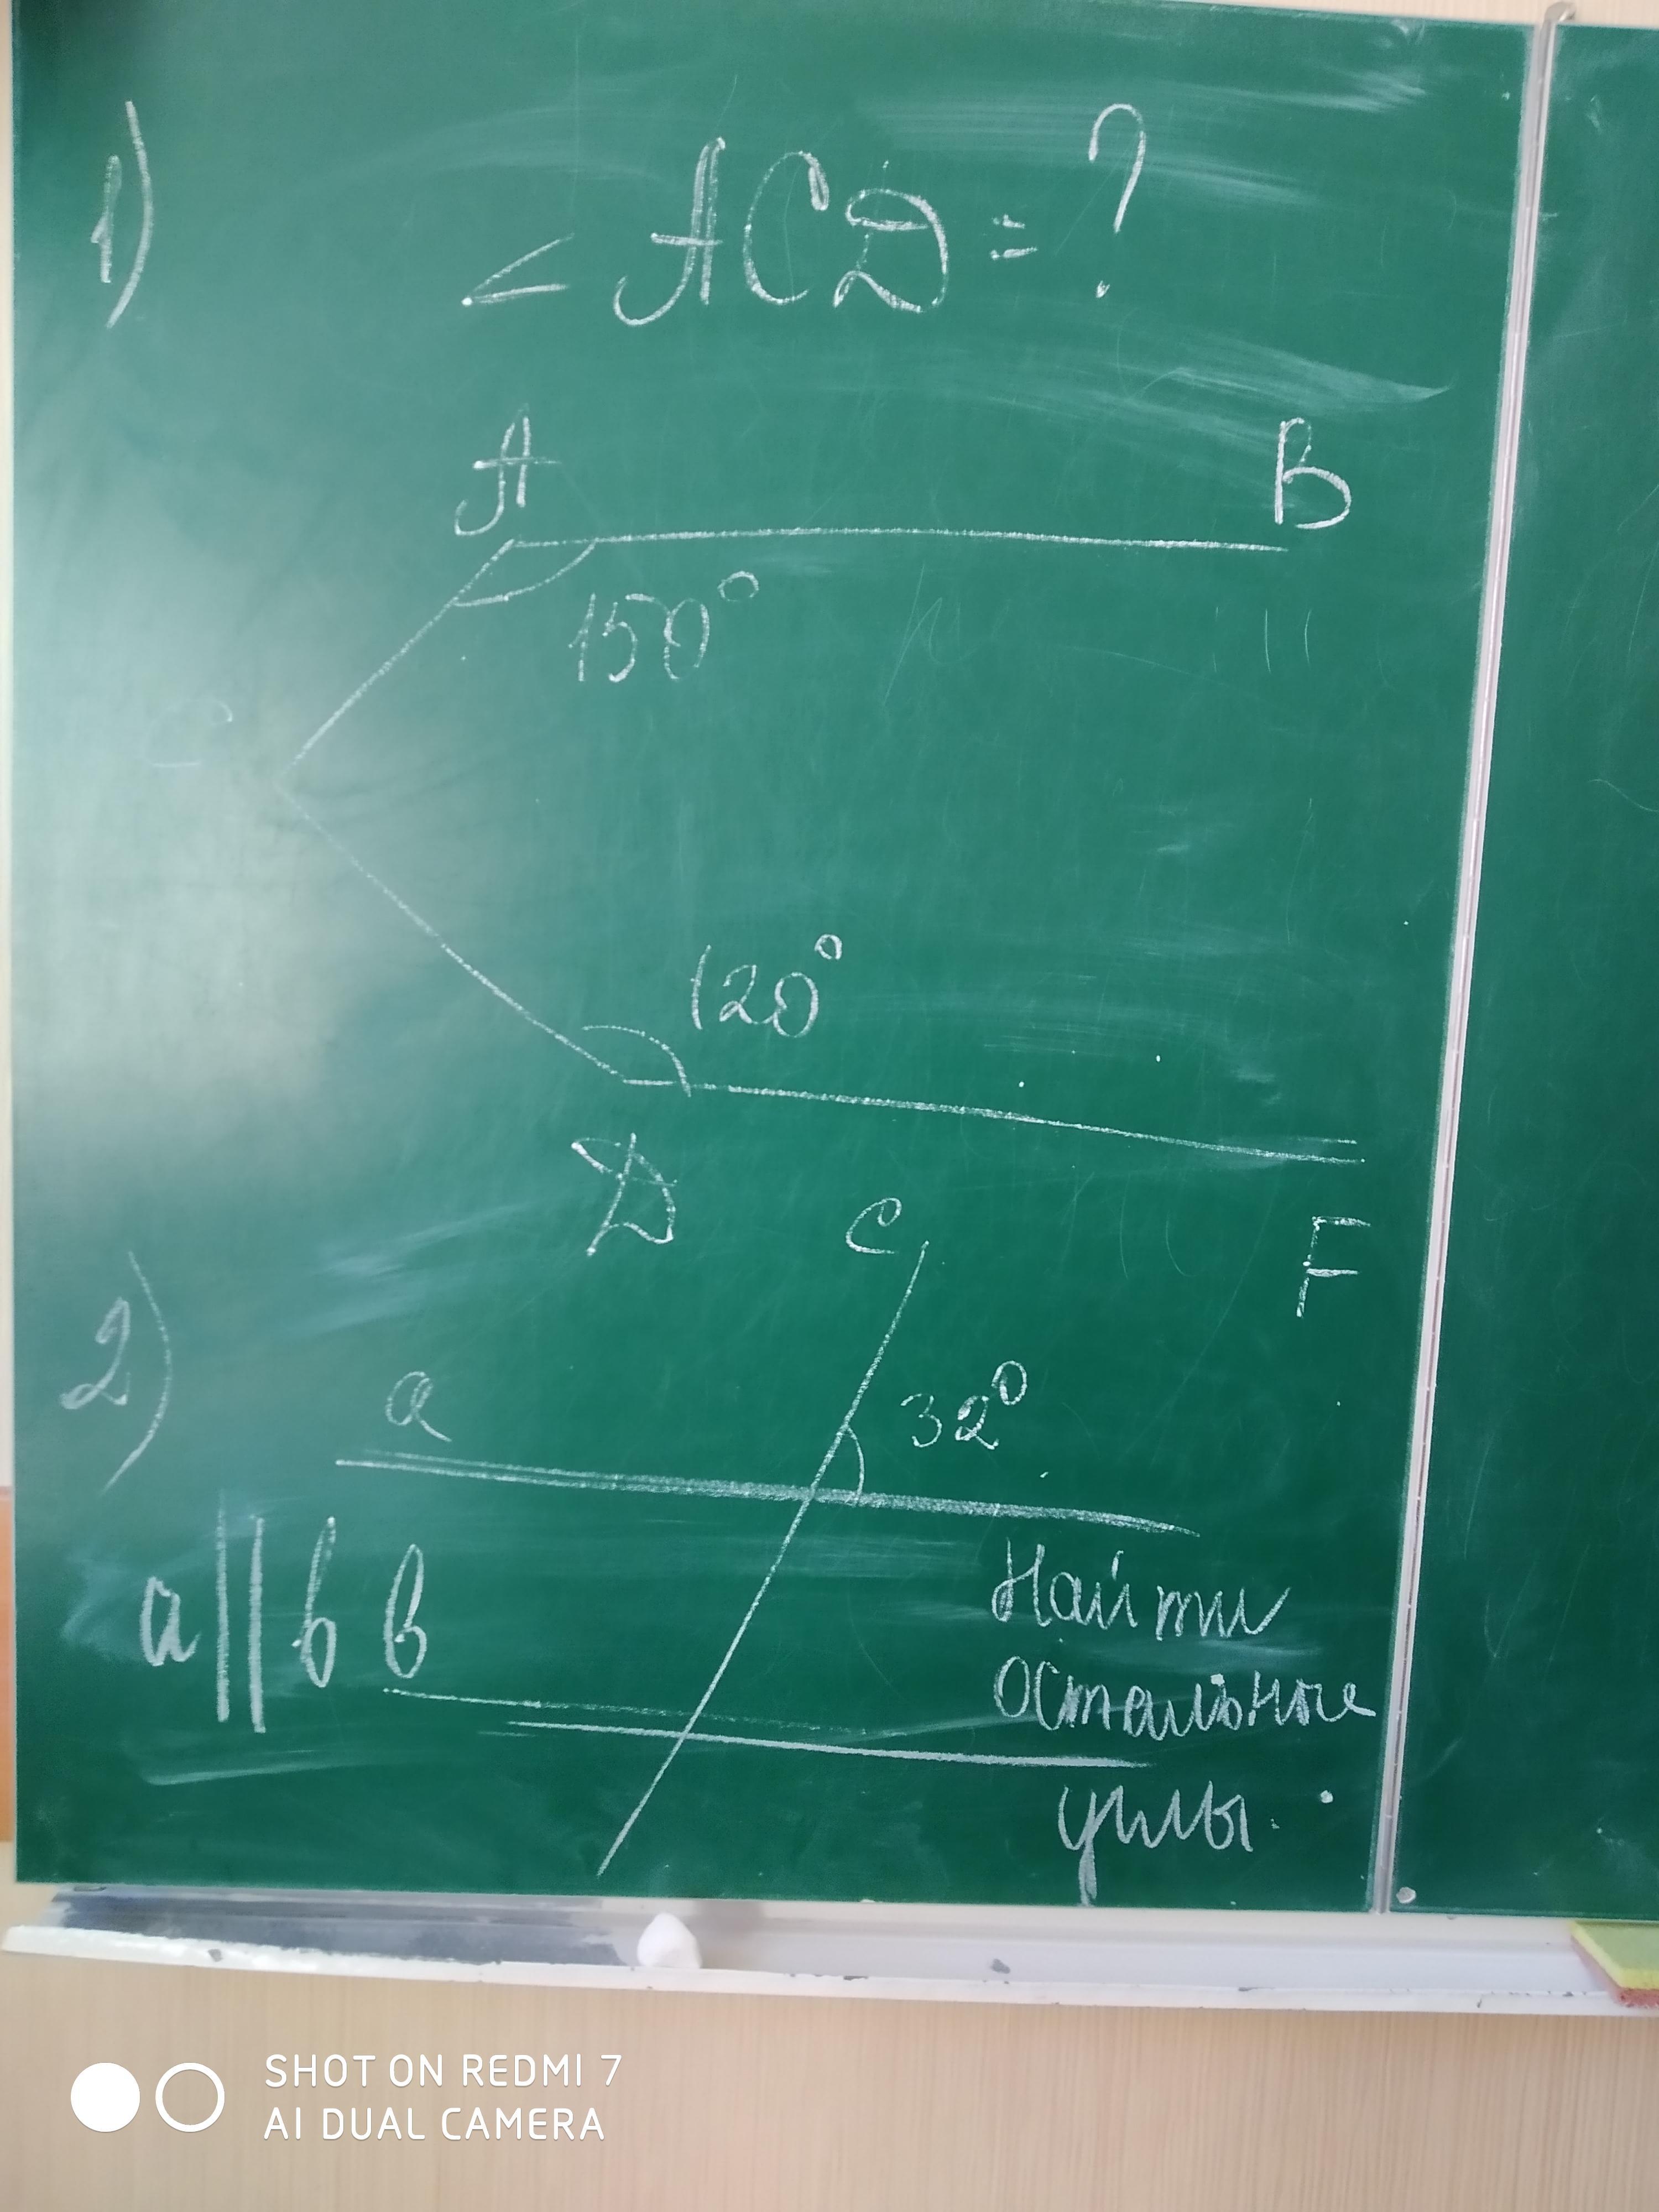 1)
∠ACD = ?
A
B
150°
C
120°
D
F
2)
C
a
32°
a||b
b
Найти
остальные
углы.
SHOT ON REDMI 7
AI DUAL CAMERA